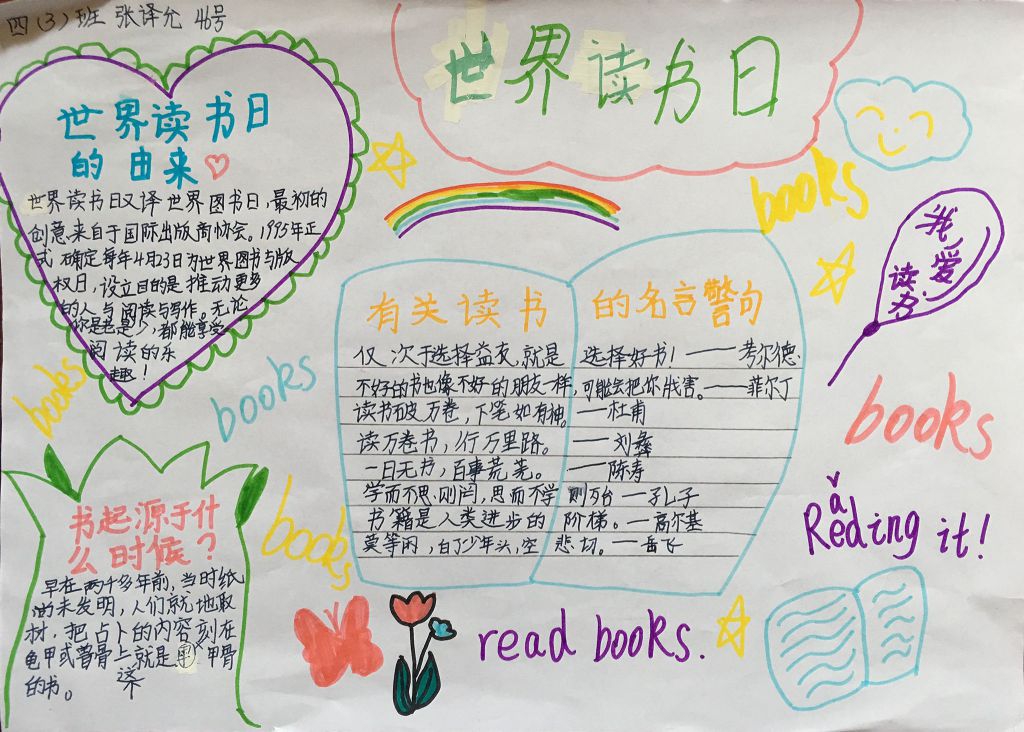 四（3）班 张译允 46号
世界读书日
世界读书日
的由来
世界读书日又译世界图书日，最初的
创意来自于国际出版商协会。1995年正
式确定每年4月23日为世界图书与版
权日，设立目的是推动更多
的人与阅读与写作。无论
你是老是少，都能享受
阅读的乐
趣！
books
books
books
我爱
读书!
有关读书的名言警句
仅次于选择益友，就是选择好书！——考尔德
不好的书也像不好的朋友一样，可能会把你戕害。——菲尔丁
读书破万卷，下笔如有神。——杜甫
读万卷书，行万里路。——刘彝
一日无书，百事荒芜。——陈寿
学而不思则罔，思而不学则殆——孔子
书籍是人类进步的阶梯。——高尔基
莫等闲，白了少年头，空悲切。——岳飞
books
Reading it!
books
书起源于什
么时候？
早在两千多年前，当时纸
由未发明，人们就地取
材，把占卜的内容刻在
龟甲或兽骨上这就是甲骨
的书。
read books.